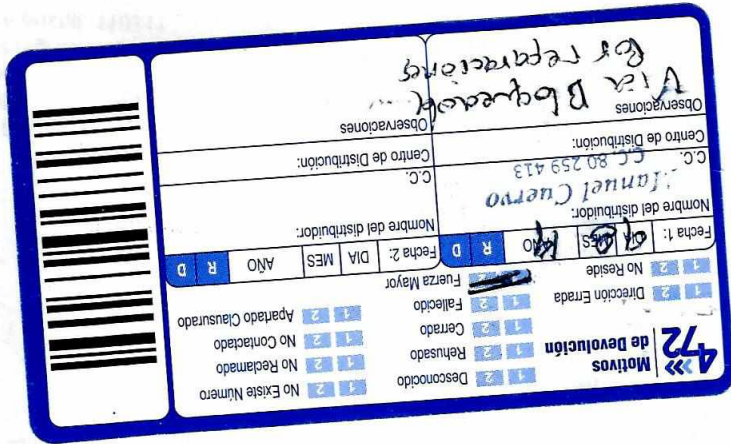 472
Motivos
de Devolución
1 2 Desconocido
1 2 Rehusado
1 2 Cerrado
1 2 Fallecido
Fuerza Mayor
1 2 No Existe Número
1 2 No Reclamado
1 2 No Contactado
1 2 Apartado Clausurado
1 2 Dirección Errada
1 2 No Reside
Fecha 1: DIA MES AÑO R D
Nombre del distribuidor:
Manuel Cuervo
C.C.
C.C. 80 259 413
Centro de Distribución:
Observaciones
Via Bloqueada
Por reparaciones
Fecha 2: DIA MES AÑO R D
Nombre del distribuidor:
C.C.
Centro de Distribución:
Observaciones